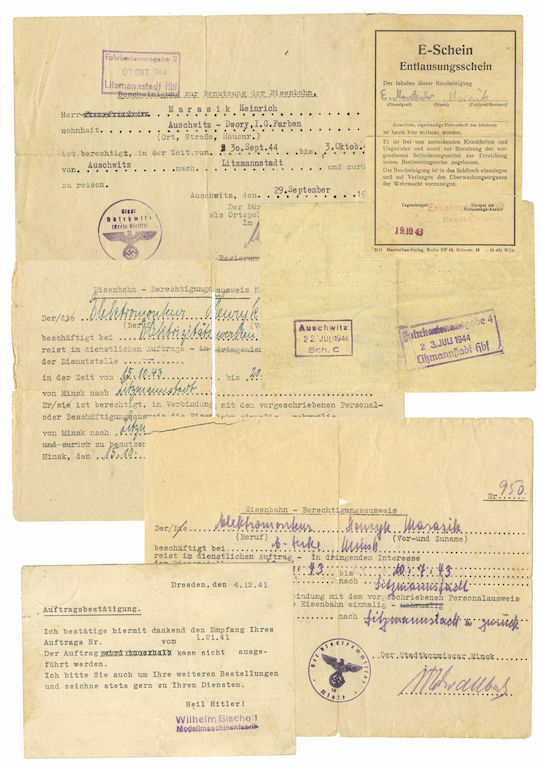 Fahrkartenausgabe 2
02 OKT 1944
Litzmannstadt Hbf
Bescheinigung zur Benutzung der Eisenbahn.
Herr Marasik Heinrich
wohnhaft Auschwitz - Dwory, I.G. Farben
(Ort, Straße, Hausnr.)
ist berechtigt, in der Zeit vom 30. Sept. 44 bis 3. Oktob.
von Auschwitz nach Litzmannstadt und zurü
zu reisen.
Auschwitz, den 29. September 19
Der Bür
als Ortspol
Im
Regierun
Stadt
Auschwitz
(Kreis Bielitz)
E-Schein
Entlausungsschein
Der Inhaber dieser Bescheinigung
E. Marasik
(Dienstgrad) (Name) (Feldpost-Nummer)
(Leserliche, eigenhändige Unterschrift des Inhabers)
ist heute hier entlaust worden.
Er ist frei von ansteckenden Krankheiten und
Ungeziefer und somit zur Benutzung der vor-
gesehenen Beförderungsmittel zur Erreichung
seines Bestimmungsortes zugelassen.
Die Bescheinigung ist in das Soldbuch einzulegen
und auf Verlangen den Überwachungsorganen
der Wehrmacht vorzuzeigen.
Tagesstempel Stempel der
Entlausungs-Anstalt
19.10.43
Maximilian-Verlag, Berlin SW 68, Ritterstr.
Eisenbahn - Berechtigungsausweis
Der/die Elektromonteur Henryk
(Beruf) (V
beschäftigt bei Elektrizitätswerken
reist im dienstlichen Auftrage - in dringendem
der Dienststelle
in der Zeit vom 15.10.43 bis 20
von Minsk nach Litzmannstadt
Er/sie ist berechtigt, in Verbindung mit den vorgeschriebenen Personal-
oder Beschäftigungsausweis die
von Minsk nach Litzm
und zurück zu benutzen
Minsk, den 15.10.
Auschwitz
22. JULI 1944
Sch. C
Fahrkartenausgabe 4
23. JULI 1944
Litzmannstadt Hbf
Nr. 950.
Eisenbahn - Berechtigungsausweis
Der/Die Elektromonteur Henryk Marasik
(Beruf) (Vor-und Zuname)
beschäftigt bei E-Werke Minsk
reist im dienstlichen Auftrag - in dringendem Interesse
43 bis 10.7.43
nach Litzmannstadt
bindung mit dem vorgeschriebenen Personalausweis
e Eisenbahn einmalig - mehrmalig
nach Litzmannstadt u. zurück
Der Stadtkommissar Minsk
Der Stadtkommissar
in Minsk
Dresden, den 4.12.41
Auftragsbestätigung.
Ich bestätige hiermit dankend den Empfang Ihres
Auftrags Nr. vom 1.21.41
Der Auftrag wird innerhalb kann nicht ausge-
führt werden.
Ich bitte Sie auch um Ihre weiteren Bestellungen
und zeichne stets gern zu Ihren Diensten.
Heil Hitler!
Wilhelm Bischof
Modellmaschinenfabrik